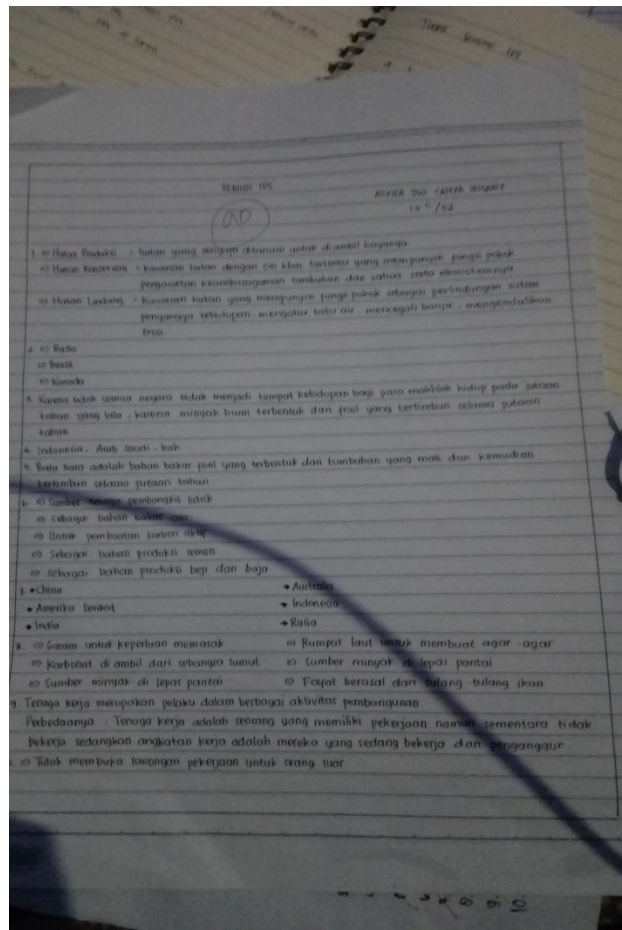 REMIDI IPS
IX C/02
90
1. => Hutan Produksi = hutan yang sengaja ditanam untuk diambil kayunya
=> Hutan Konservasi = Kawasan hutan dengan ciri khas tertentu yang mempunyai fungsi pokok
pengawetan keanekaragaman tumbuhan dan satwa serta ekosistemnya
=> Hutan Lindung = Kawasan hutan yang mempunyai fungsi pokok sebagai perlindungan sistem
penyangga kehidupan, mengatur tata air, mencegah banjir, mengendalikan
erosi
2. => Rusia
=> Brazil
=> Kanada
3. Karena tidak semua negara tidak menjadi tempat kehidupan bagi para makhluk hidup pada jutaan
tahun yang lalu, karena minyak bumi terbentuk dari fosil yang tertimbun selama jutaan
tahun
4. Indonesia, Arab Saudi, Irak
5. Batu bara adalah bahan bakar fosil yang terbentuk dari tumbuhan yang mati dan kemudian
tertimbun selama jutaan tahun
6. => Sumber tenaga pembangkit listrik
=> Sebagai bahan bakar cair
=> Untuk pembuatan karbon aktif
=> Sebagai bahan produksi semen
=> Sebagai bahan produksi besi dan baja
7. China Australia
Amerika Serikat Indonesia
India Rusia
8. => Garam untuk keperluan memasak => Rumput laut untuk membuat agar-agar
=> Karbonat di ambil dari sebangsa lumut => Sumber minyak di lepas pantai
=> Sumber minyak di lepas pantai => Fosfat berasal dari tulang-tulang ikan
9. Tenaga kerja merupakan pelaku dalam berbagai aktivitas pembangunan
Perbedaanya : Tenaga kerja adalah seorang yang memiliki pekerjaan namun sementara tidak
bekerja sedangkan angkatan kerja adalah mereka yang sedang bekerja dan pengangaur.
=> Tidak membuka lowongan pekerjaan untuk orang luar
8. 9. 10.